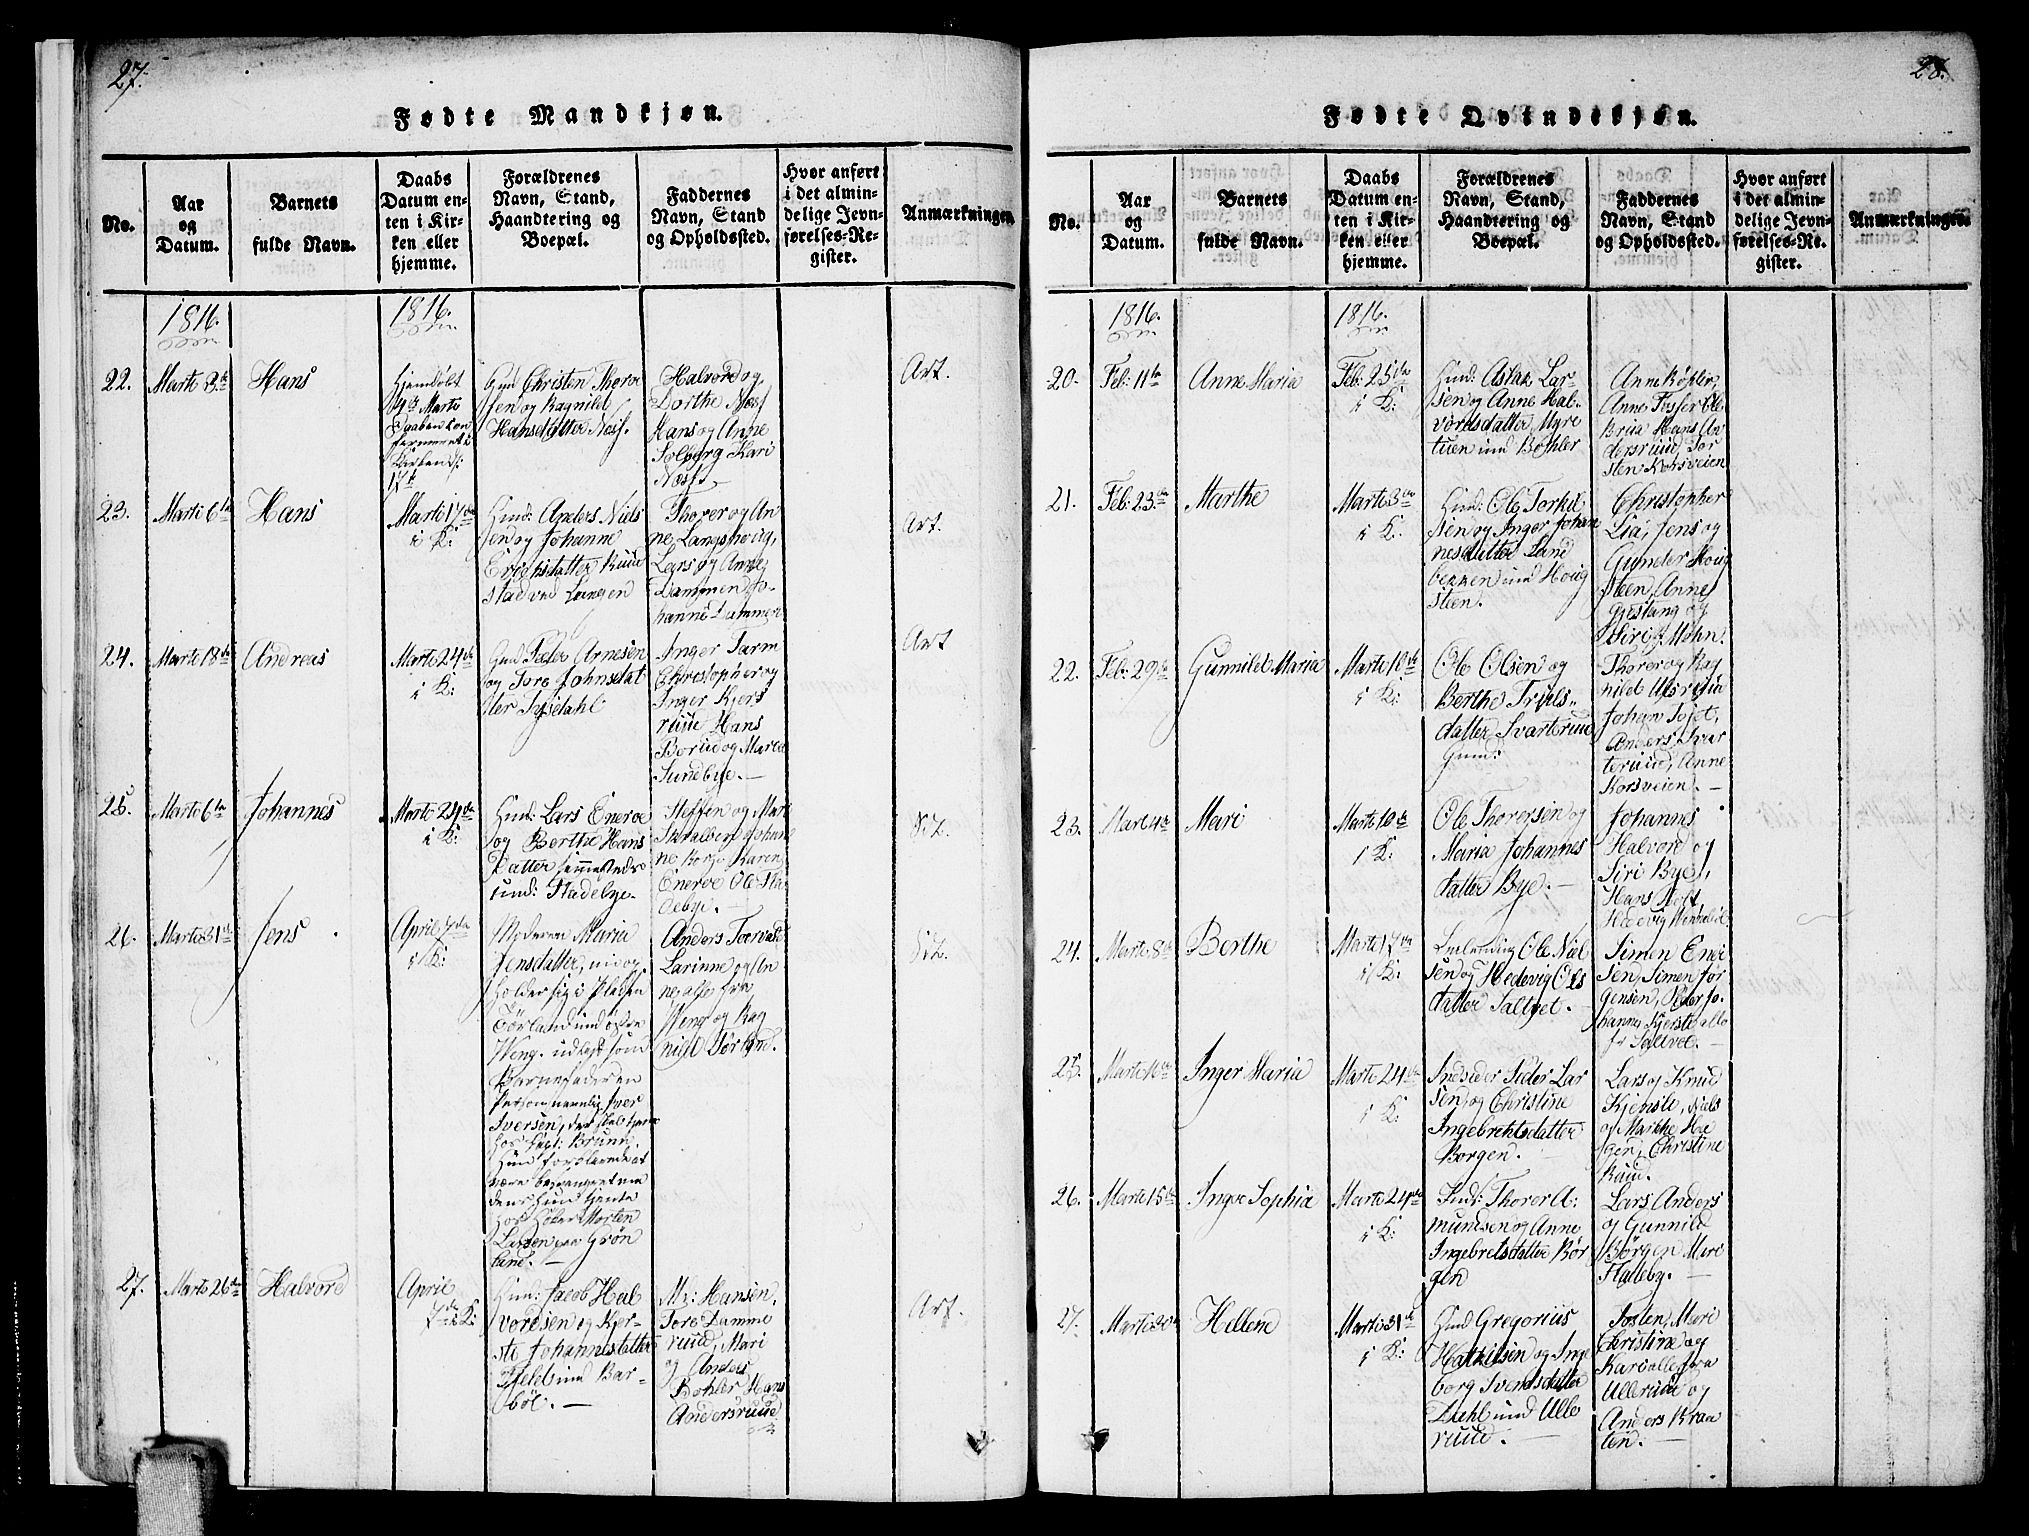 27.
Fødte Mandkjøn.
No.
Aar
og
Datum.
Barnets
fulde Navn.
Daabs
Datum en-
ten i Kir-
ken eller
hjemme.
Forældrenes
Navn, Stand,
Haandtering og
Boepæl.
Faddernes
Navn, Stand
og Opholdssted.
Hvor anført
i det almin-
delige Jevn-
førelses-Re-
gister.
Anmærkninger.
1816.
1816.
22.
Marti 3de
Hans
Hjemdøbt
Marti
Daaben con
firmeret i
Kirken d:
17de
Christen Thorve
sen og Ragnild
Hansdatter Næss.
Halvord og
Dorthe Næss
Hans og Anne
Solberg Kari
Næss.
Art.
23.
Marti 6te
Hans
Marti 17de
i K:
Huusm: Anders Niels
sen og Johanne
Erichsdatter Ruud
stad ved Langen
Thorer og An
ne Langshoug,
Lars og Anne
Dammen Jo-
hanne Dammen
Art.
24.
Marti 18de
Andreas
Marti 24de
i K:
Gmd Peder Arnesen
og Tore Johnsdat
ter Sysedahl
Inger Tarm
Christopher og
Inger Kjers
ruue Hans
Borud og Marte
Sundbye.
Art
25.
Marti 6te
Johannes
Marti 24de
i K:
Huusm: Lars Eneroe
og Berthe Hans
Datter
und: Stadebye.
Steffen og Mari
Skralberg Johan
ne Borge Karen
Eneroe Ole Sta
debye.
S: 2.
26.
Marti 31te
Jens
April 7de
i K:
Moderen Maria
Jensdatter, op
holder sig i Pladsen
Tørland under
Weng. udlagt som
Barnefader en
Person navnlig Iver
Iversen, der skal tjene
hos Capt: Brunn.
Hun forklarede at
være besvangret me
dens hun tjente
hos Morten
Larsen paa Grøn
land.
Anders Toervald
Larinne og An
ne alle fra
Weng og Rag
nild Tørland.
S: 2.
27.
Marti 26de
Halvord
April
7de i K:
Huusm: Jacob Hal
vordsen og Kjer-
sti Johannesdatter
Fjeld und Bar-
bøl.
Mr: Hansen,
Tore Damme
ruud, Mari
og Anders
Bøhler Hans
Andersruud
Art.
28.
Fødte Qvindekjøn.
No.
Aar
og
Datum.
Barnets
fulde Navn.
Daabs
Datum en-
ten i Kir-
ken eller
hjemme.
Forældrenes
Navn, Stand,
Haandtering og
Boepæl.
Faddernes
Navn, Stand
og Opholdssted.
Hvor anført
i det almin-
delige Jevn-
førelses-Re-
gister.
Anmærkninger.
1816.
1816.
20.
Feb: 11te
Anne Maria
Feb: 25de
i K:
Huusm: Aslak Lar-
sen og Anne Hal-
vordsdatter Myre
tuen und Bøhler
Anne Bøhler,
Anne Fosser Ole
Brua Hans An
dersruud, Tor
sten Korsveien
21.
Feb: 23de
Marthe
Marti 3de
i K:
Huusm: Ole Torkil
sen og Inger Johan
nesdatter Sand
bekken und Houg
steen.
Christopher
Lia, Jens og
Gunder Houg
steen, Anne
Gjestang og
Siri Mohn.
22.
Feb: 29de
Gunnild Maria
Marti 10de
i K:
Ole Olsen og
Berthe Truls-
datter Svarterud
Gmd:
Thorer og Rag
nild Ulsrua
Johan Tojet,
Anders Svar
terud, Anne
Korsveien.
23.
Mart 4de
Mari
Marti 10de
i K:
Ole Thorersen og
Maria Johannes
datter Bye.
Johannes
Halvord og
Siri Bye,
Hans Hoft,
Hedevig
24.
Marti 8de
Berthe
Marti 17de
i K:
Ole Niel
sen og Hedevig Ols
datter Saltvet.
Simen Enei
sen, Simen Jør
gensen, Peder Jo
hannes Kjersti alle
fr Saltvet.
25.
Marti 10de
Inger Maria
Marti 24de
i K:
Indsider Peder Lar
sen, og Christine
Ingebrektsdatter
Borgen.
Lars og Knud
Kjensle, Niels
og Marthe Ha
gen, Christine
Ruud.
26.
Marti 15de
Inger Sophia
Marti 24de
i K:
Inds: Thorer A:
mundsen og Anne
Ingebretsdatter Bør
gen
Lars Anders
og Gunnild
Børgen Mari
Stalleby.
27.
Marti 30te
Hellene
Marti 31te
i K:
Huusm Gregorius
Hatvilsen og Inge
borg Svendsdatter
Dahl und Ulle
ruud.
Josten, Mari
Christine og
Kari alle fra
Ullerud og
Anders Braa
ten.